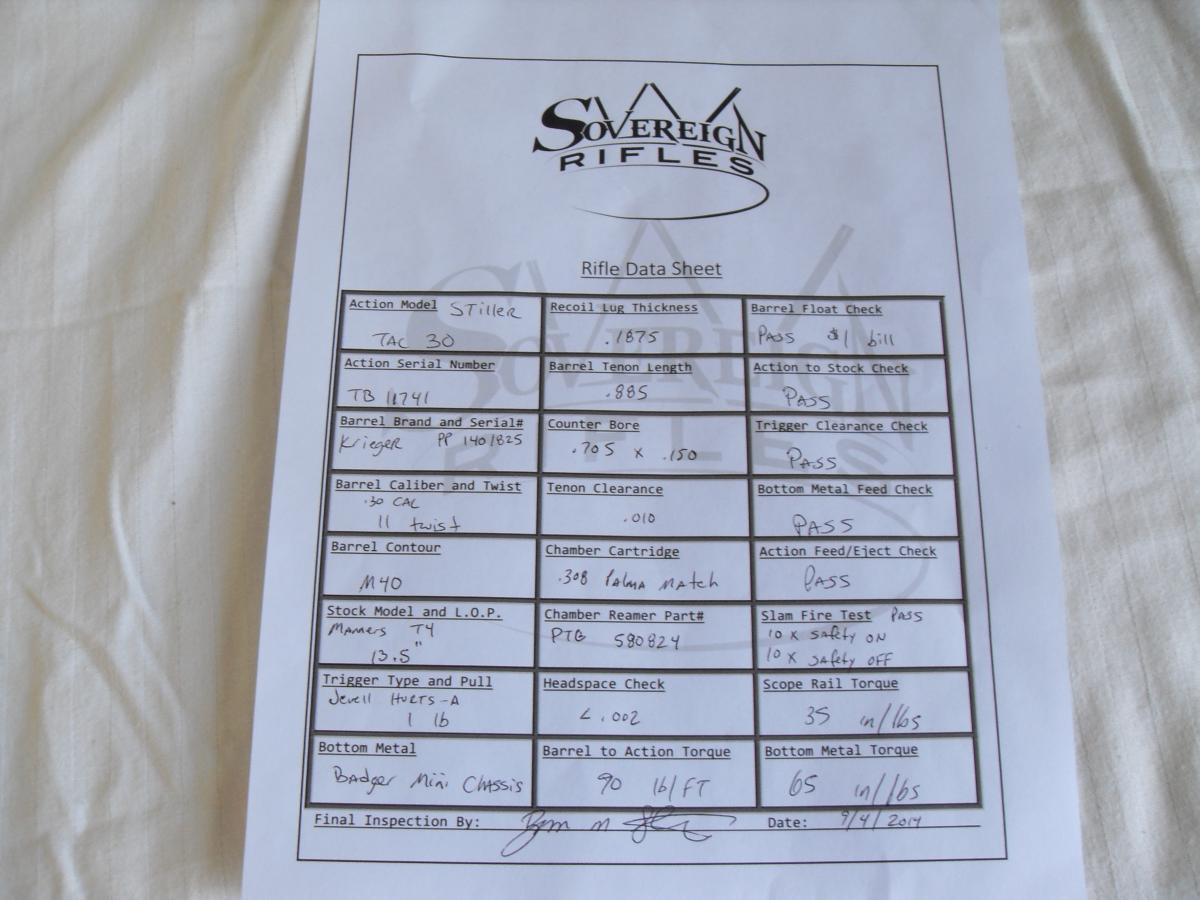 SOVEREIGN
RIFLES
Rifle Data Sheet
Action Model Stiller
TAC 30
Recoil Lug Thickness
.1875
Barrel Float Check
PASS $1 bill
Action Serial Number
TB 11741
Barrel Tenon Length
.885
Action to Stock Check
PASS
Barrel Brand and Serial#
Krieger PP 1401825
Counter Bore
.705 x .150
Trigger Clearance Check
PASS
Barrel Caliber and Twist
.30 CAL
11 twist
Tenon Clearance
.010
Bottom Metal Feed Check
PASS
Barrel Contour
M40
Chamber Cartridge
.308 Palma Match
Action Feed/Eject Check
PASS
Stock Model and L.O.P.
Manners T4
13.5"
Chamber Reamer Part#
PTG 580824
Slam Fire Test PASS
10 x Safety ON
10 x Safety OFF
Trigger Type and Pull
Jewell HVRTS-A
1 lb
Headspace Check
<.002
Scope Rail Torque
35 in/lbs
Bottom Metal
Badger Mini Chassis
Barrel to Action Torque
90 lb/FT
Bottom Metal Torque
65 in/lbs
Final Inspection By:
Date: 9/4/2014